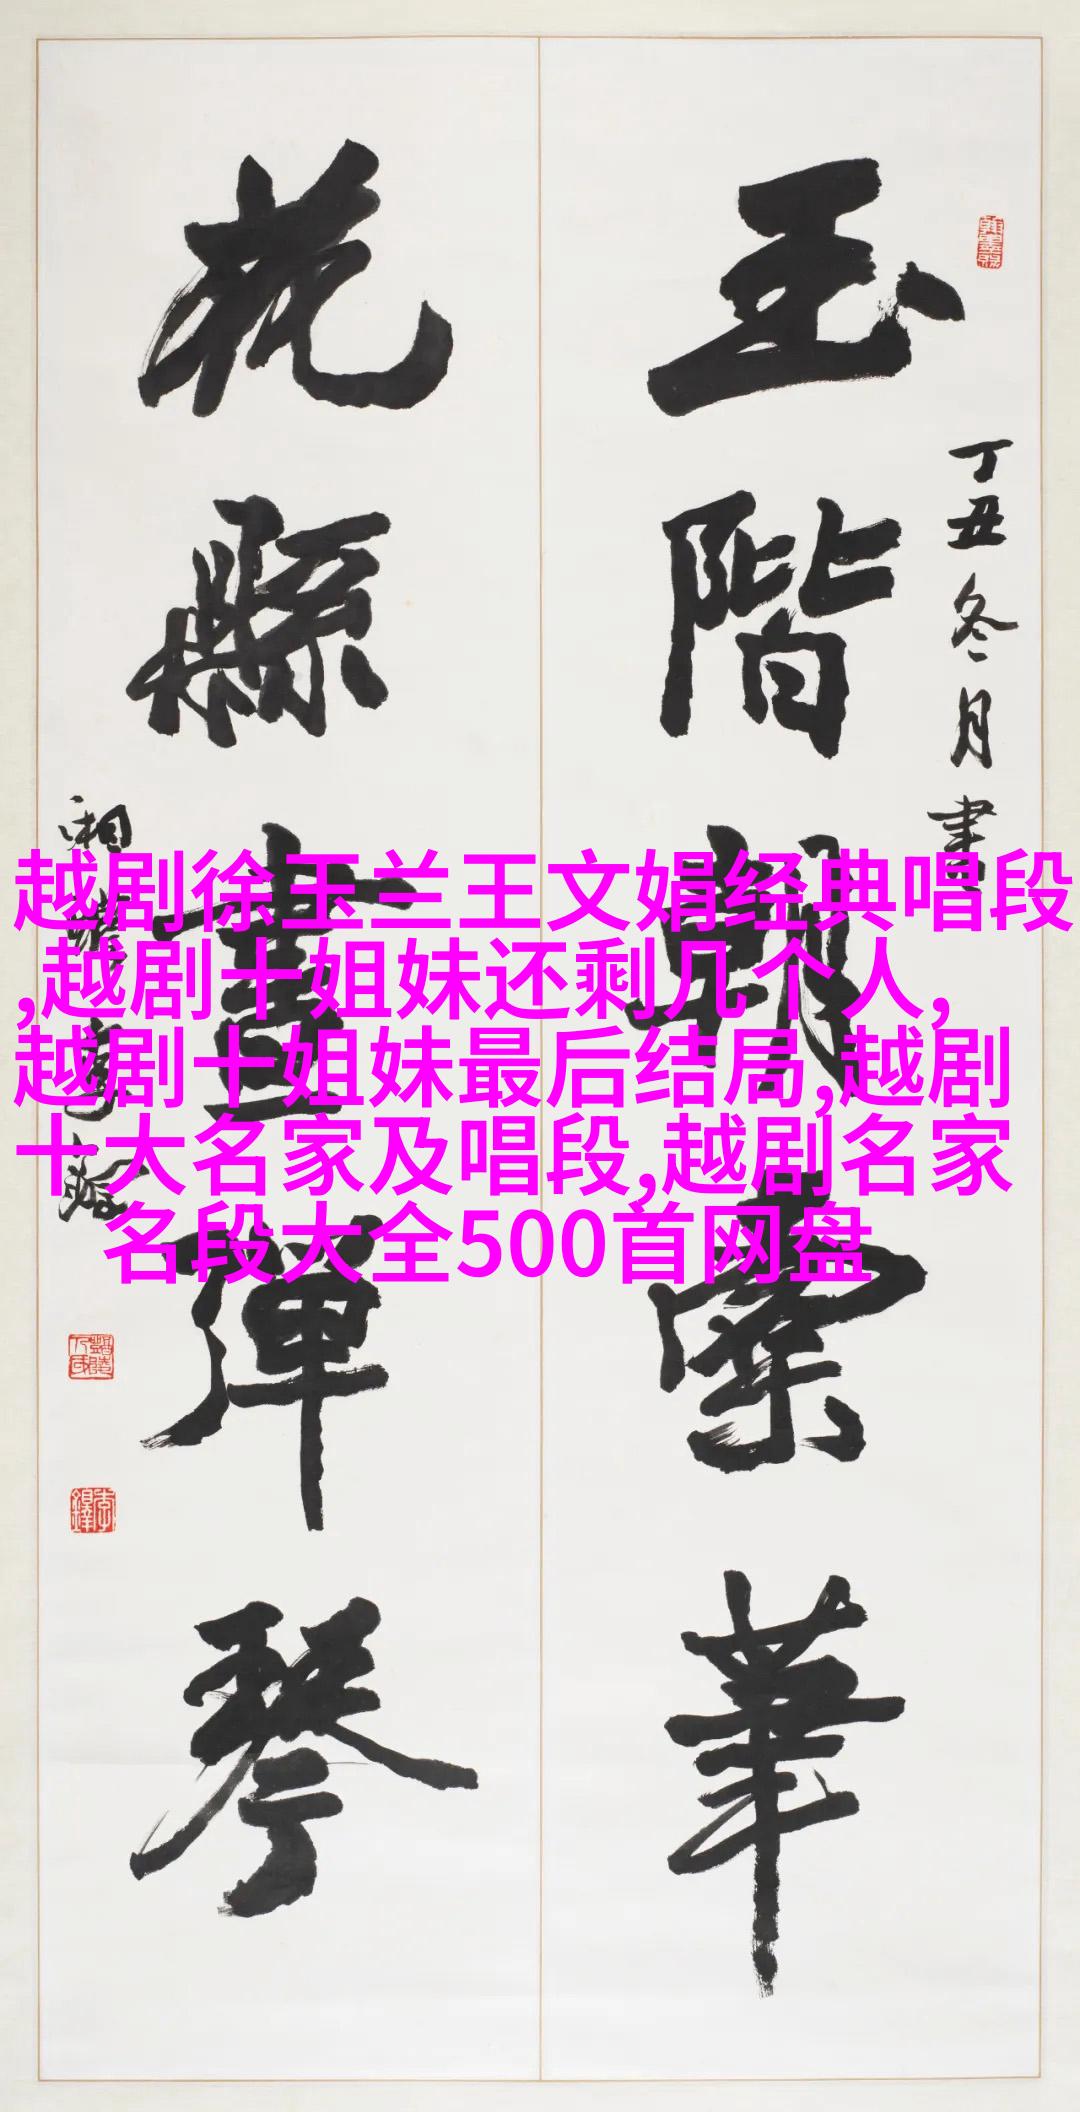 丁丑冬月書
玉階朝索筆
花縣晝彈琴
湘醴李鐸
李鐸
越剧徐玉兰王文娟经典唱段
,越剧十姐妹还剩几个人,
越剧十姐妹最后结局,越剧
十大名家及唱段,越剧名家
名段大全500首网盘